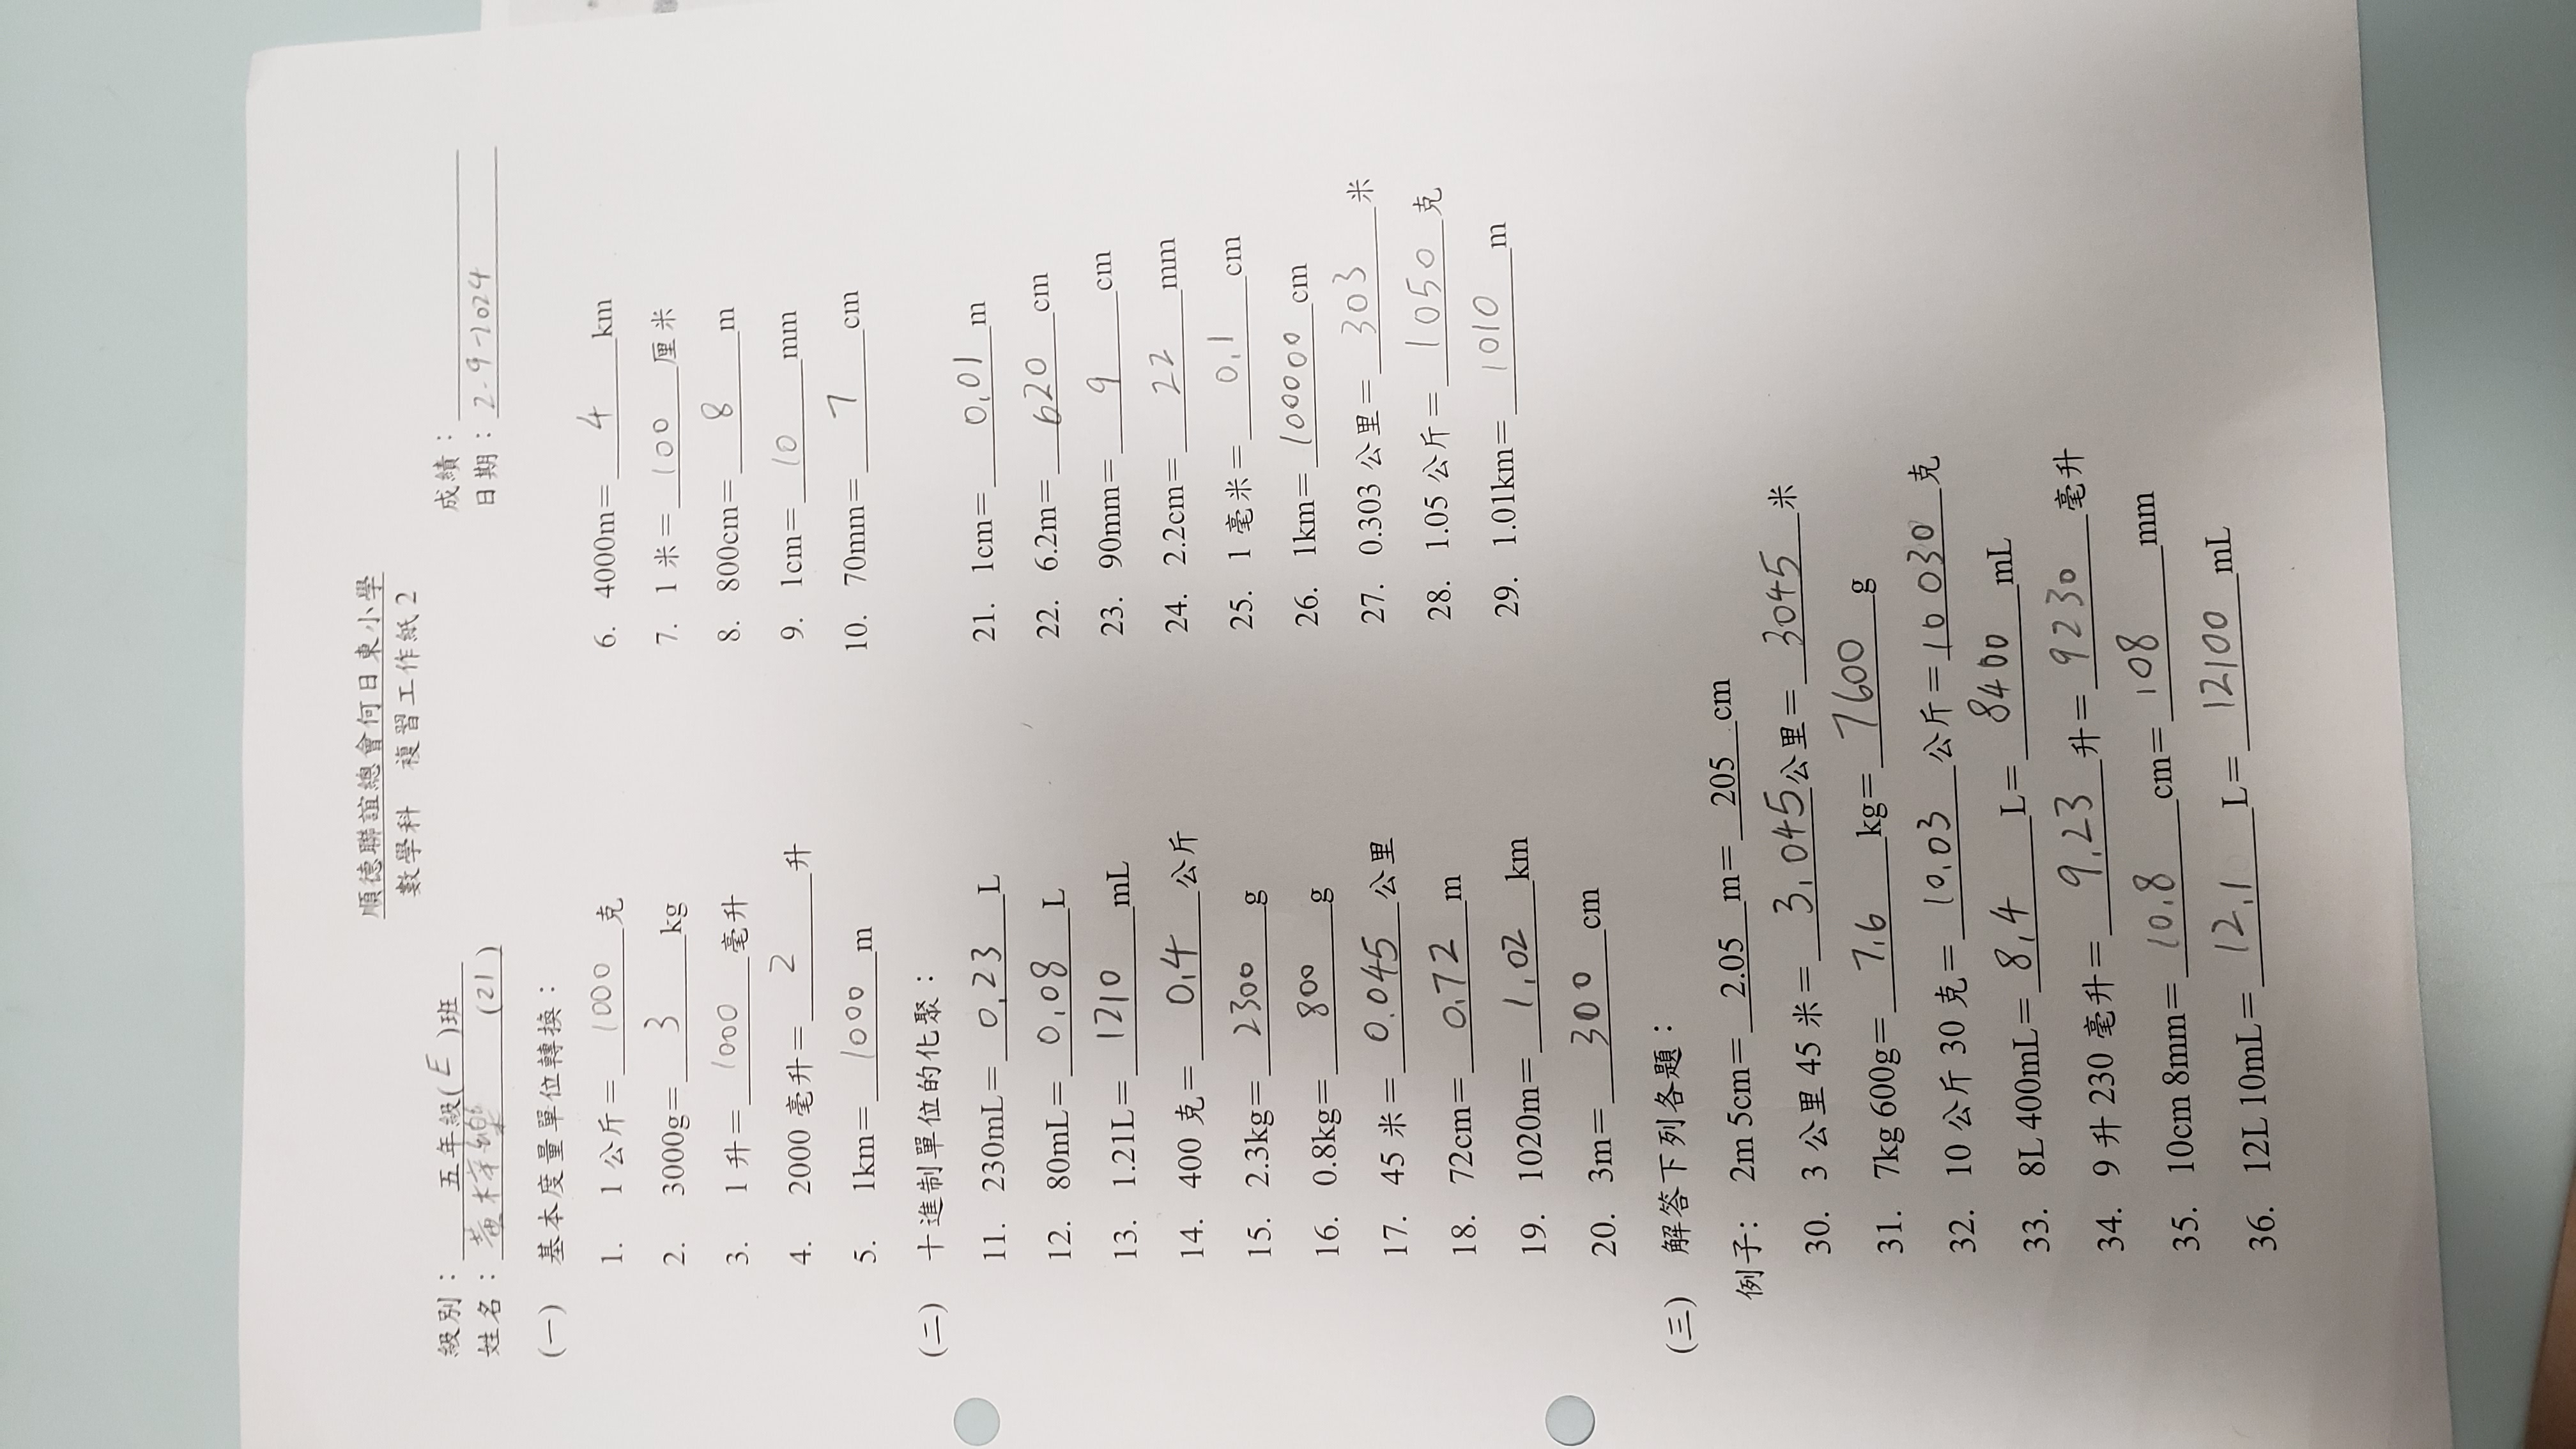 順德聯誼總會何日東小學
數學科 複習工作紙 2
級別： 五年級( E )班 成績：
姓名： (21) 日期：2-9-2024
(一) 基本度量單位轉換：
1. 1 公斤＝ 1000 克 6. 4000m＝ 4 km
2. 3000g＝ 3 kg 7. 1 米＝ 100 厘米
3. 1 升＝ 1000 毫升 8. 800cm＝ 8 m
4. 2000 毫升＝ 2 升 9. 1cm＝ 10 mm
5. 1km＝ 1000 m 10. 70mm＝ 7 cm
(二) 十進制單位的化聚：
11. 230mL＝ 0.23 L 21. 1cm＝ 0.01 m
12. 80mL＝ 0.08 L 22. 6.2m＝ 620 cm
13. 1.21L＝ 1210 mL 23. 90mm＝ 9 cm
14. 400 克＝ 0.4 公斤 24. 2.2cm＝ 22 mm
15. 2.3kg＝ 2300 g 25. 1 毫米＝ 0.1 cm
16. 0.8kg＝ 800 g 26. 1km＝ 100000 cm
17. 45 米＝ 0.045 公里 27. 0.303 公里＝ 303 米
18. 72cm＝ 0.72 m 28. 1.05 公斤＝ 1050 克
19. 1020m＝ 1.02 km 29. 1.01km＝ 1010 m
20. 3m＝ 300 cm
(三) 解答下列各題：
例子： 2m 5cm＝ 2.05 m＝ 205 cm
30. 3 公里 45 米＝ 3.045 公里＝ 3045 米
31. 7kg 600g＝ 7.6 kg＝ 7600 g
32. 10 公斤 30 克＝ 10.03 公斤＝ 10030 克
33. 8L 400mL＝ 8.4 L＝ 8400 mL
34. 9 升 230 毫升＝ 9.23 升＝ 9230 毫升
35. 10cm 8mm＝ 10.8 cm＝ 108 mm
36. 12L 10mL＝ 12.1 L＝ 12100 mL